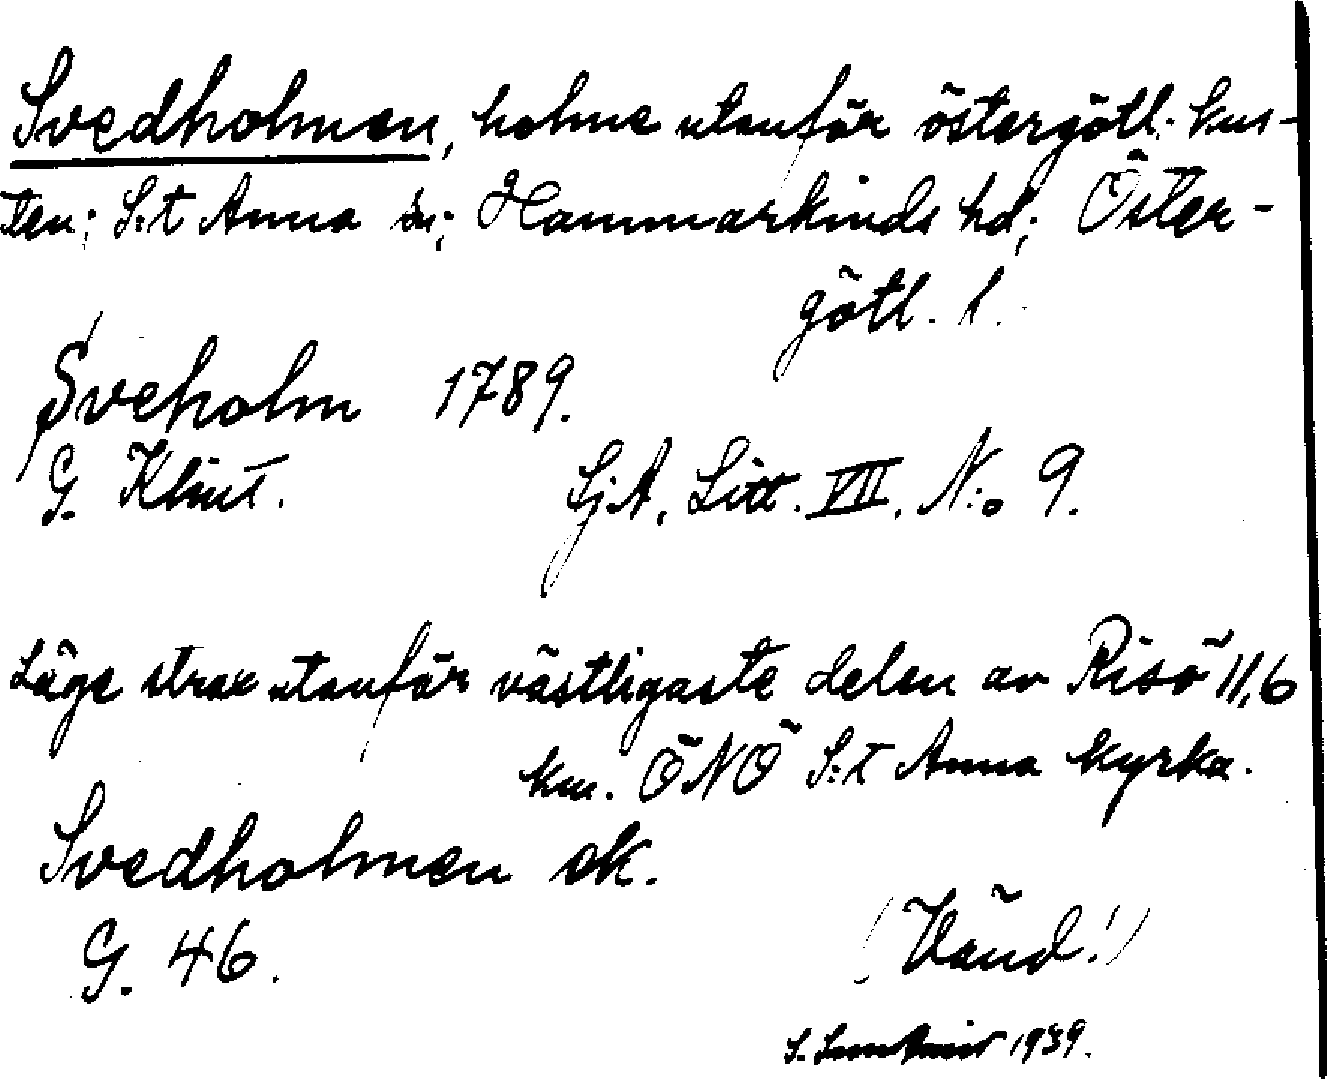 Svedholmen, holme utanför östergötl. kus-
ten; S:t Anna sn; Hammarkinds hd; Öster-
götl. l.
Sveholm 1789.
G. Klint. SjA, Litt. VII. N:o 9.
Läge strax utanför västligaste delen av Risö 11,6
km. ÖNÖ S:t Anna kyrka.
Svedholmen ek.
G. 46.
(Vänd!)
S. 1939.